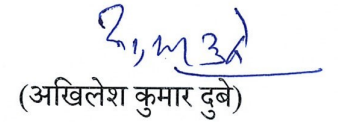 (अखिलेश कुमार दुबे)